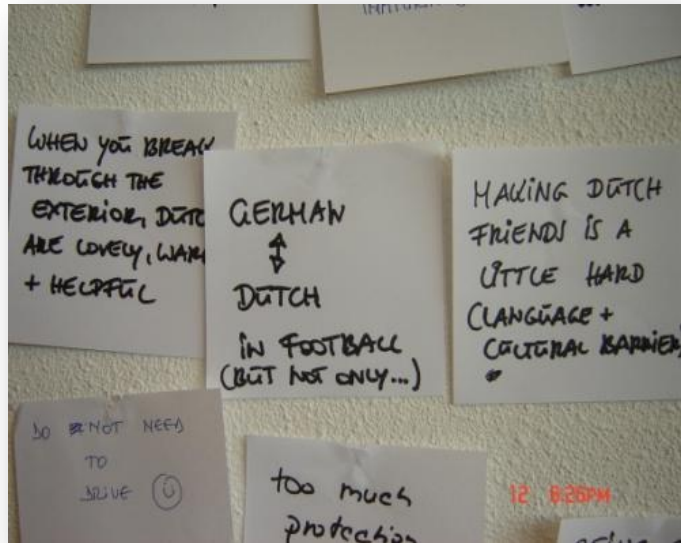 WHEN YOU BREAK
THROUGH THE
EXTERIOR, DUTC
ARE LOVELY, WAR
+ HELPFUL
GERMAN
↕
DUTCH
IN FOOTBALL
(BUT NOT ONLY...)
MAKING DUTCH
FRIENDS IS A
LITTLE HARD
(LANGUAGE +
CULTURAL BARRIER
DO NOT NEED
TO
DRIVE
too much
protection
12 6:26PM